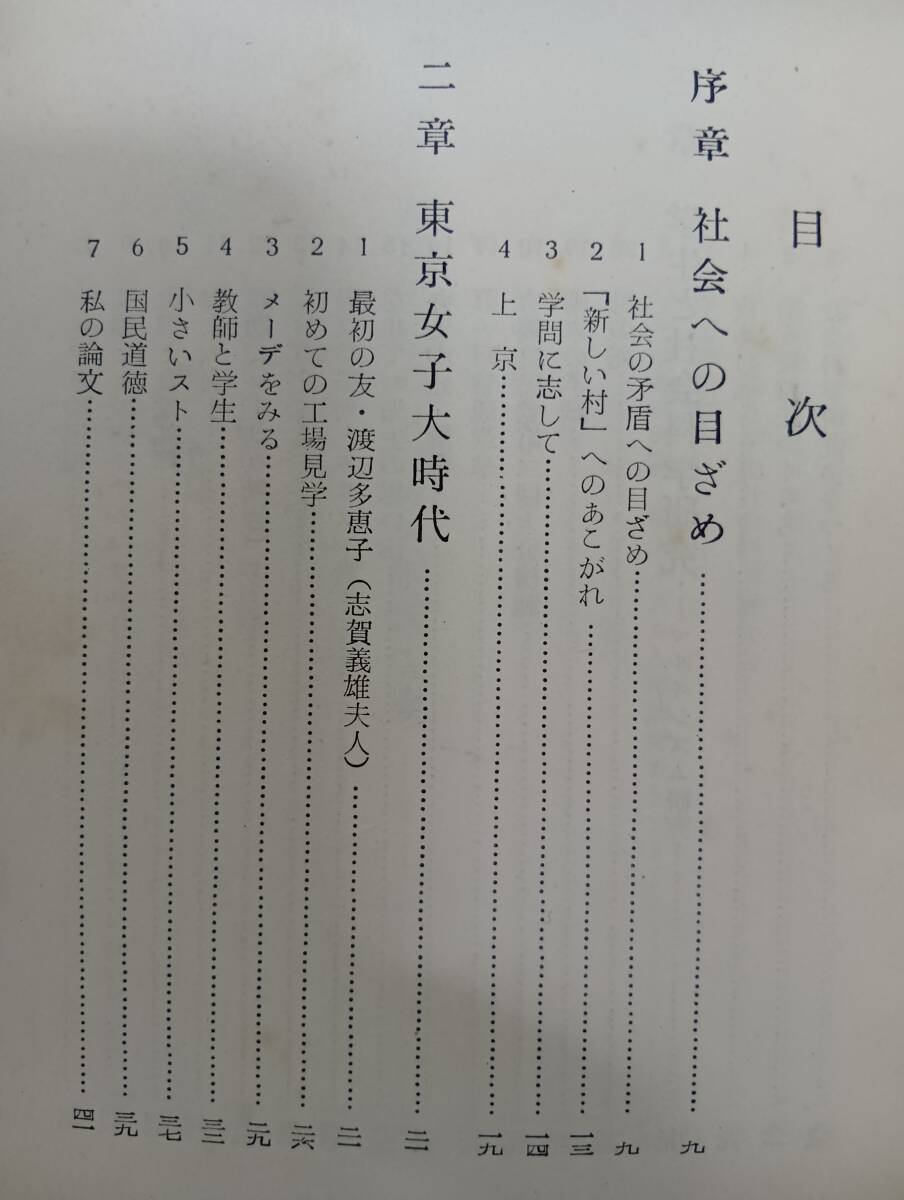 目次
序章 社会への目ざめ……九
1 社会の矛盾への目ざめ……九
2 「新しい村」へのあこがれ……一三
3 学問に志して……一四
4 上京……一九
二章 東京女子大時代……二一
1 最初の友・渡辺多恵子（志賀義雄夫人）……二一
2 初めての工場見学……二六
3 メーデをみる……二九
4 教師と学生……三二
5 小さいスト……三七
6 国民道徳……三九
7 私の論文……四一